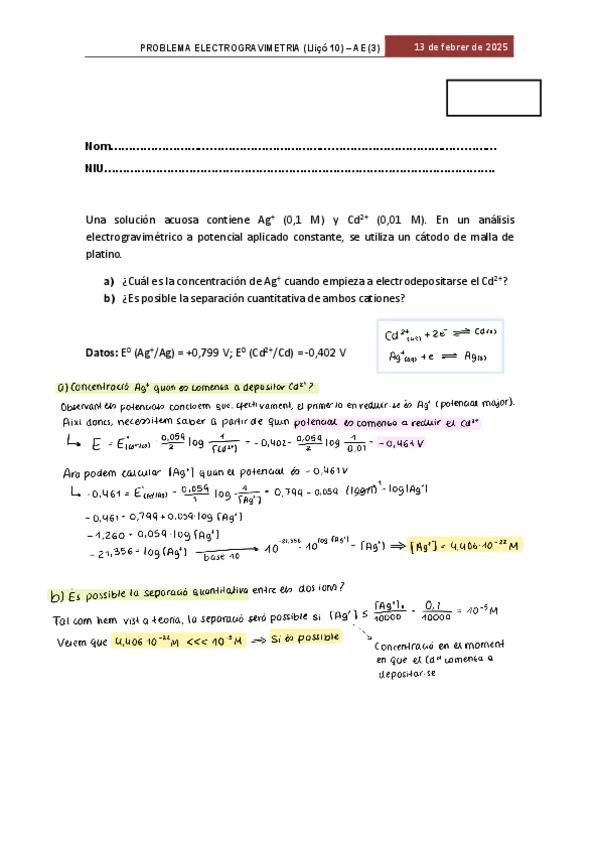 PROBLEMA ELECTROGRAVIMETRIA (Lliçó 10) – AE(3)
13 de febrer de 2025
Nom............................................................
NIU............................................................
Una solución acuosa contiene Ag⁺ (0,1 M) y Cd²⁺ (0,01 M). En un análisis
electrogravimétrico a potencial aplicado constante, se utiliza un cátodo de malla de
platino.
a) ¿Cuál es la concentración de Ag⁺ cuando empieza a electrodepositarse el Cd²⁺?
b) ¿Es posible la separación cuantitativa de ambos cationes?
Cd²⁺(aq) + 2e⁻ ⇌ Cd(s)
Datos: E⁰ (Ag⁺/Ag) = +0,799 V; E⁰ (Cd²⁺/Cd) = -0,402 V
Ag⁺(aq) + e⁻ ⇌ Ag(s)
a) Concentració Ag⁺ quan es comença a depositar Cd²⁺?
Observant els potencials concloem que, efectivament, el primer ió en reduir-se és Ag⁺ (potencial major).
Així doncs, necessitem saber a partir de quin potencial es comença a reduir el Cd²⁺
↳ E = E°(Cd²⁺/Cd) - 0,059/2 log 1/[Cd²⁺] = -0,402 - 0,059/2 log 1/0.01 = -0,461 V
Ara podem calcular [Ag⁺] quan el potencial és -0,461 V
↳ -0,461 = - 0,059/1 log 1/[Ag⁺] = 0,799 - 0,059 - log[Ag⁺]
-0,461 = 0,799 + 0,059·log [Ag⁺]
-1,260 = 0,059·log [Ag⁺]
-21,356 = log [Ag⁺] base 10 → 10^-21,356 = 10^log [Ag⁺] = [Ag⁺] ⇒ [Ag⁺] = 4,406·10⁻²² M
b) És possible la separació quantitativa entre els dos ions?
Tal com hem vist a teoria, la separació serà possible si [Ag⁺] ≤ [Ag⁺]₀/10000 = 0,1/10000 = 10⁻⁵ M
Veiem que 4,406·10⁻²² M <<< 10⁻⁵ M ⇒ Sí és possible
Concentració en el moment
en que el Cd²⁺ comença a
depositar-se